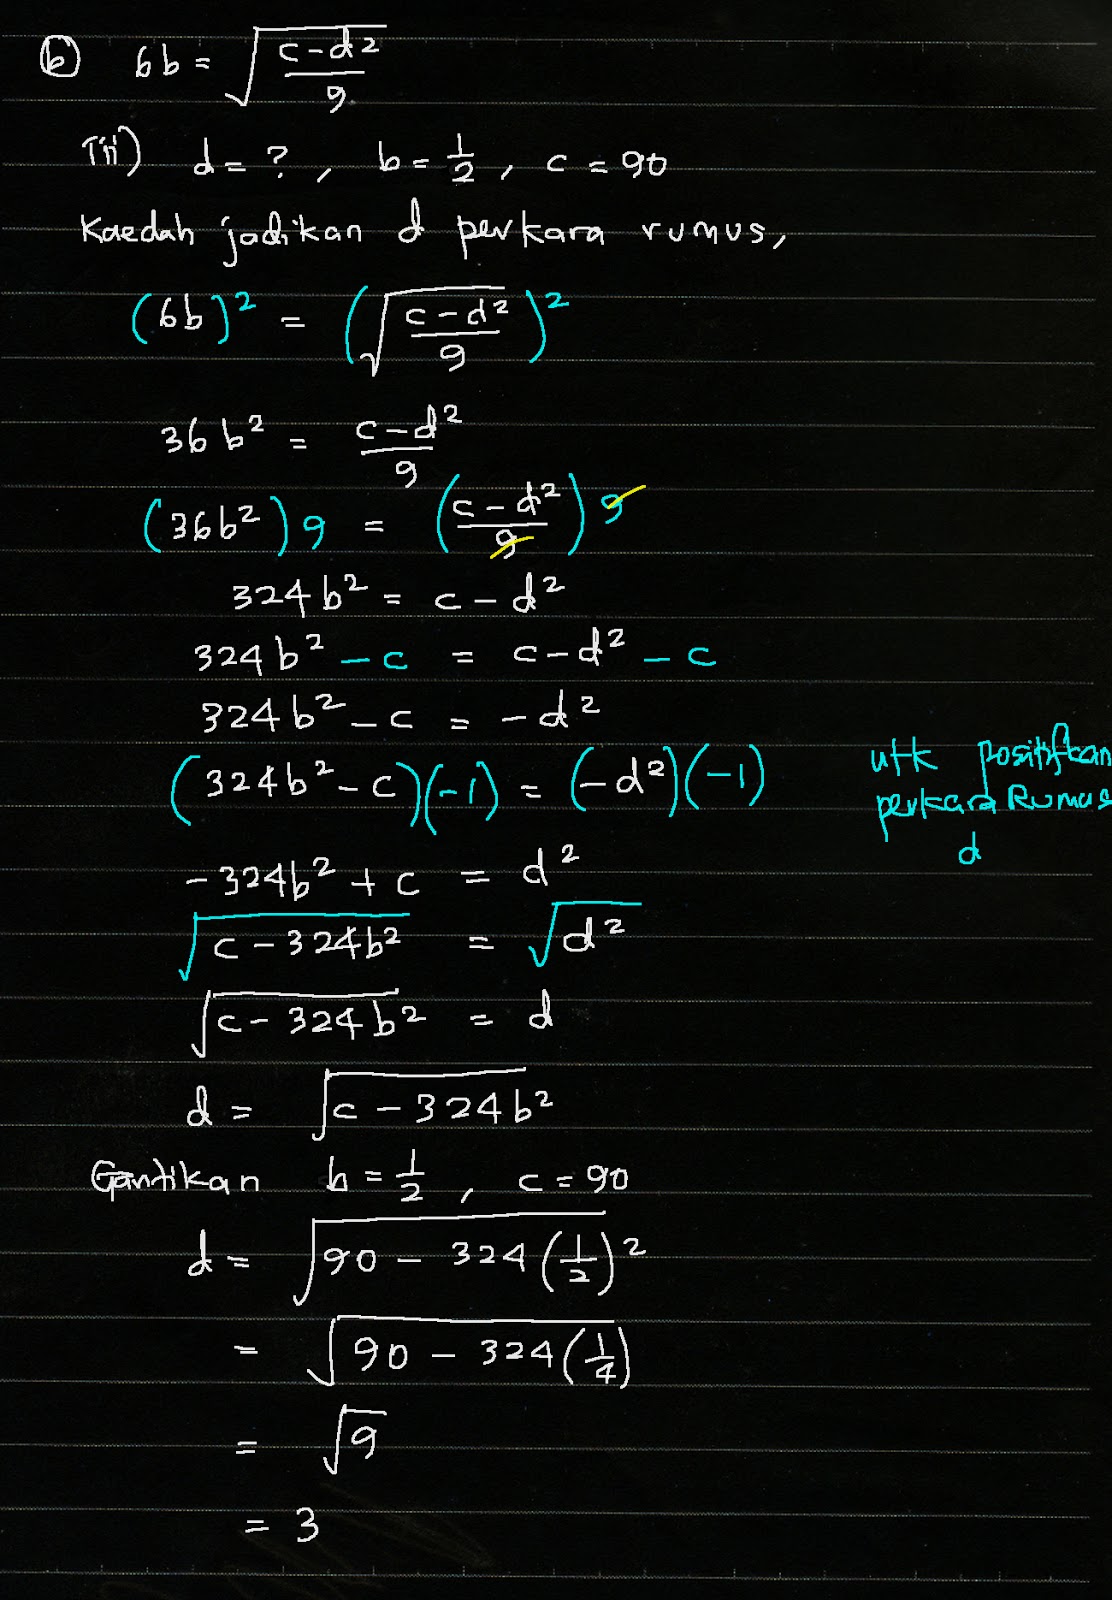 (b) 6b = √((c-d²)/9)
iii) d = ?, b = 1/2, c = 90
Kaedah jadikan d perkara rumus,
(6b)² = (√((c-d²)/9))²
36b² = (c-d²)/9
(36b²)9 = ((c-d²)/9)9
324b² = c - d²
324b² - c = c - d² - c
324b² - c = -d²
(324b² - c)(-1) = (-d²)(-1)
utk positifkan
perkara Rumus
d
-324b² + c = d²
√(c - 324b²) = √(d²)
√(c - 324b²) = d
d = √(c - 324b²)
Gantikan b = 1/2, c = 90
d = √(90 - 324(1/2)²)
= √(90 - 324(1/4))
= √9
= 3